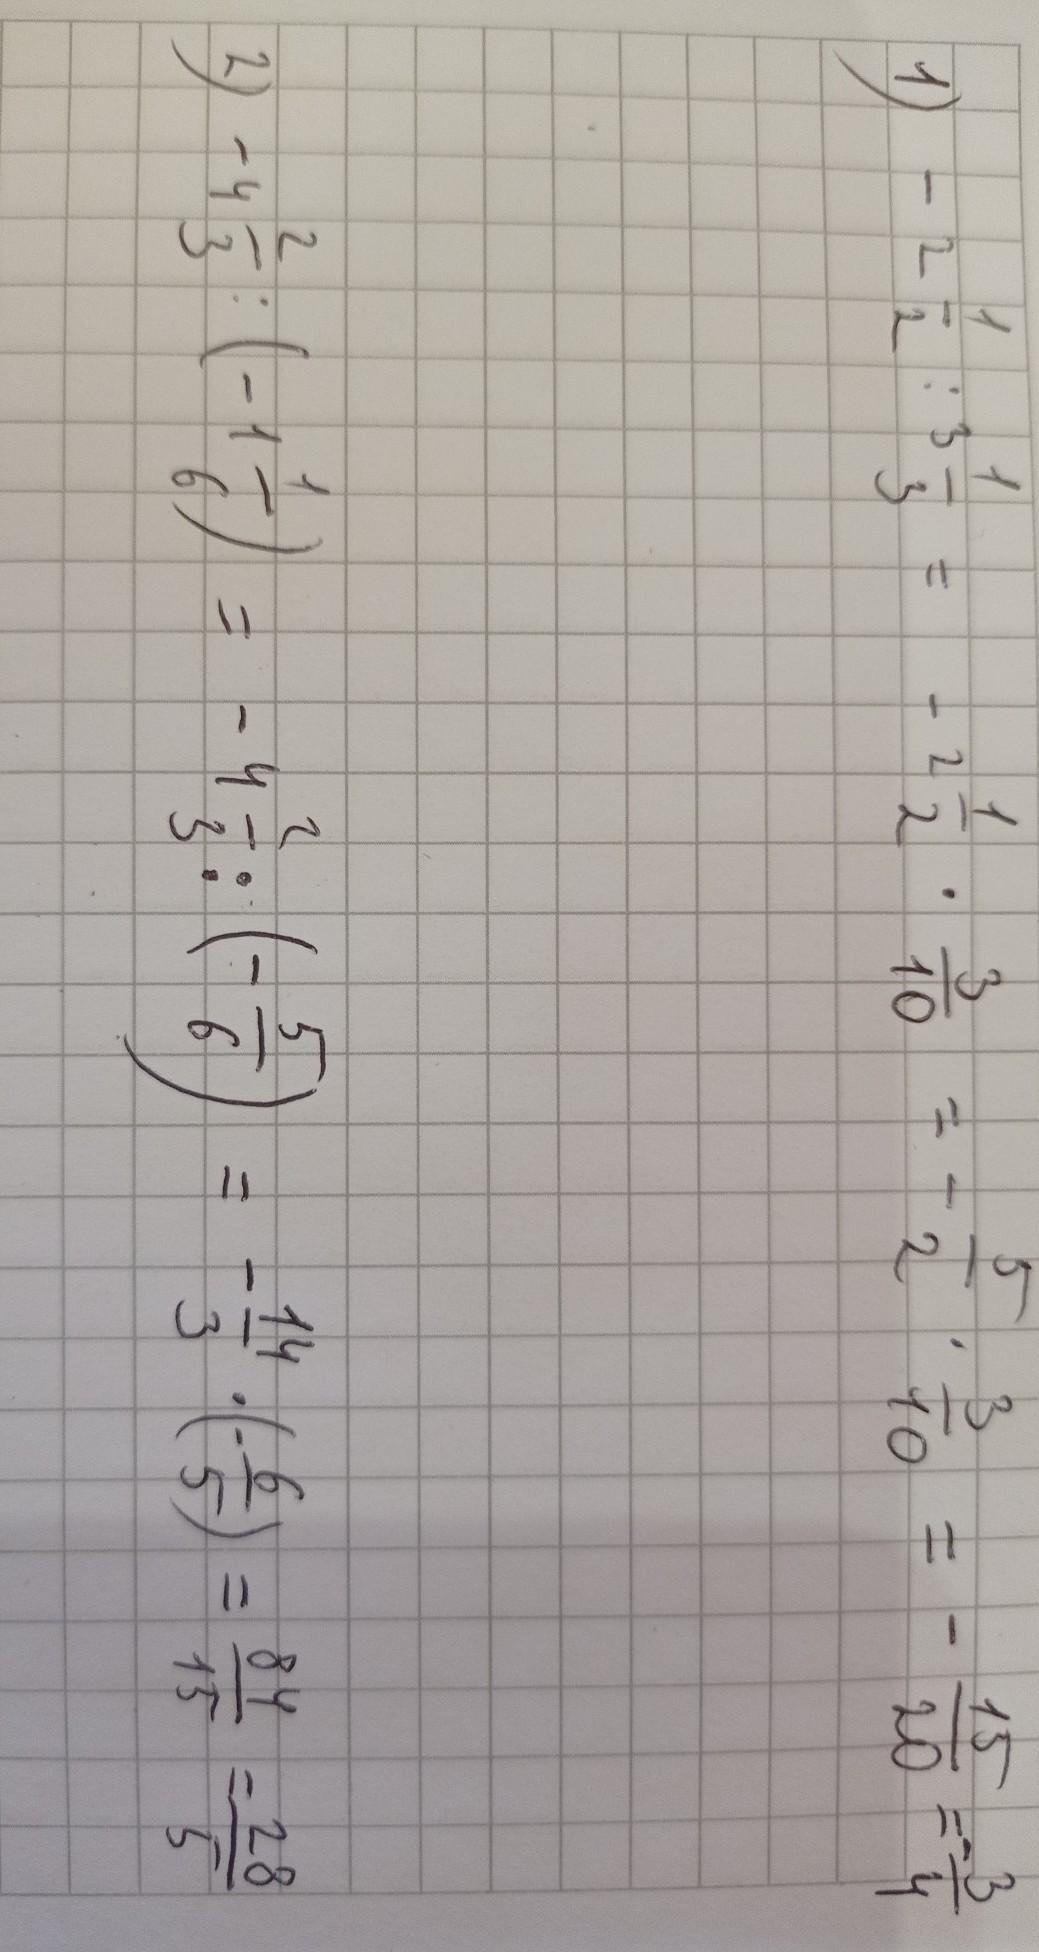 1) - 2 1/2 : 3 1/3 = - 2 1/2 · 3/10 = - 5/2 · 3/10 = - 15/20 = - 3/4
2) - 4 2/3 : (- 1 1/6) = - 4 2/3 : (- 5/6) = - 14/3 · (- 6/5) = 84/15 = 28/5